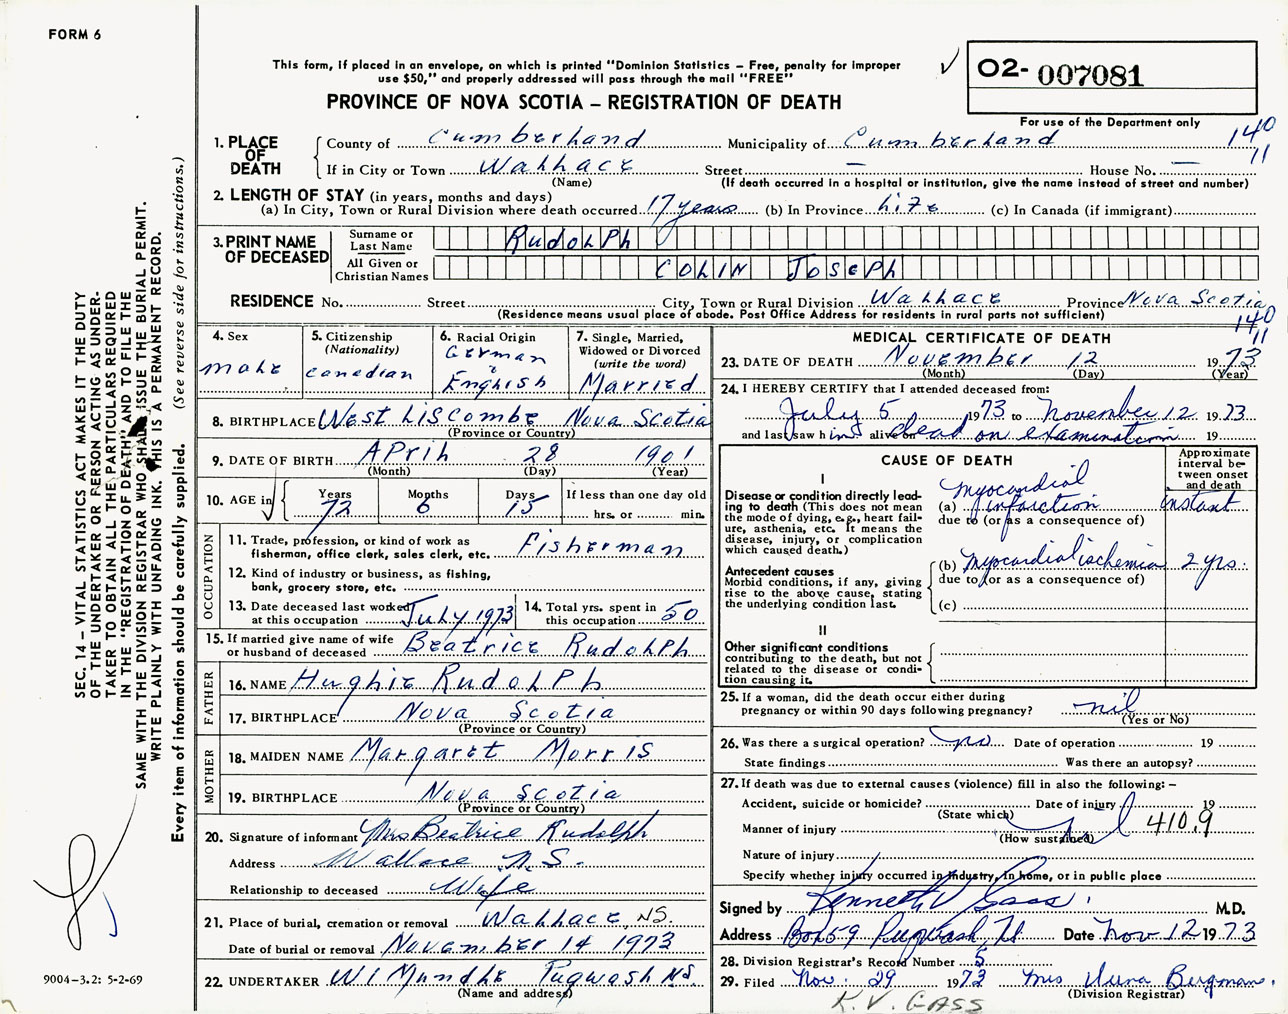 FORM 6
This form, if placed in an envelope, on which is printed "Dominion Statistics – Free, penalty for improper
use $50," and properly addressed will pass through the mail "FREE"
✓ 02- 007081
PROVINCE OF NOVA SCOTIA – REGISTRATION OF DEATH
For use of the Department only
140
11
1. PLACE OF DEATH County of Cumberland Municipality of Cumberland
If in City or Town Wallace Street – House No. –
(Name) (If death occurred in a hospital or institution, give the name instead of street and number)
2. LENGTH OF STAY (in years, months and days)
(a) In City, Town or Rural Division where death occurred 17 years (b) In Province Life (c) In Canada (if immigrant)
3. PRINT NAME OF DECEASED
Surname or Last Name RudoLPh
All Given or Christian Names COLIN JOSEPH
RESIDENCE No. Street City, Town or Rural Division Wallace Province Nova Scotia
(Residence means usual place of abode. Post Office Address for residents in rural parts not sufficient)
140
11
4. Sex male
5. Citizenship (Nationality) Canadian
6. Racial Origin German & English
7. Single, Married, Widowed or Divorced (write the word) Married
8. BIRTHPLACE West Liscombe Nova Scotia
(Province or Country)
9. DATE OF BIRTH APril 28 1901
(Month) (Day) (Year)
10. AGE in Years 72 Months 6 Days 15 If less than one day old
hrs. or min.
OCCUPATION
11. Trade, profession, or kind of work as
fisherman, office clerk, sales clerk, etc. Fisherman
12. Kind of industry or business, as fishing,
bank, grocery store, etc.
13. Date deceased last worked at this occupation July 1973 14. Total yrs. spent in this occupation 50
15. If married give name of wife
or husband of deceased Beatrice RudoLPh
FATHER
16. NAME Hughie RudoLPh
17. BIRTHPLACE Nova Scotia
(Province or Country)
MOTHER
18. MAIDEN NAME Margaret Morris
19. BIRTHPLACE Nova Scotia
(Province or Country)
20. Signature of informant Mrs Beatrice Rudolph
Address Wallace N.S.
Relationship to deceased Wife
21. Place of burial, cremation or removal Wallace, N.S.
Date of burial or removal November 14 1973
22. UNDERTAKER W I Mundle Pugwash N.S.
(Name and address)
MEDICAL CERTIFICATE OF DEATH
23. DATE OF DEATH November 12 1973
(Month) (Day) (Year)
24. I HEREBY CERTIFY that I attended deceased from:
July 5 1973 to November 12 1973
and last saw him alive on dead on examination 19
CAUSE OF DEATH
Approximate interval between onset and death
I
Disease or condition directly leading to death (This does not mean
the mode of dying, e.g., heart failure, asthenia, etc. It means the
disease, injury, or complication
which caused death.)
(a) myocardial infarction instant
due to (or as a consequence of)
Antecedent causes
Morbid conditions, if any, giving
rise to the above cause, stating
the underlying condition last.
(b) Myocardial ischemia 2 yrs.
due to (or as a consequence of)
(c)
II
Other significant conditions
contributing to the death, but not
related to the disease or condition causing it.
25. If a woman, did the death occur either during
pregnancy or within 90 days following pregnancy? nil
(Yes or No)
26. Was there a surgical operation? no Date of operation 19
State findings Was there an autopsy?
27. If death was due to external causes (violence) fill in also the following: –
Accident, suicide or homicide? Date of injury 19
(State which)
Manner of injury nil 410.9
(How sustained)
Nature of injury
Specify whether injury occurred in Industry, in home, or in public place
Signed by Kenneth V Gass M.D.
Address Box 59 Pugwash NS Date Nov 12 1973
28. Division Registrar's Record Number 5
29. Filed Nov. 29 1973 Mrs Bergman
(Division Registrar)
K. V. GASS
SEC. 14 – VITAL STATISTICS ACT MAKES IT THE DUTY
OF THE UNDERTAKER OR PERSON ACTING AS UNDER-
TAKER TO OBTAIN ALL THE PARTICULARS REQUIRED
IN THE "REGISTRATION OF DEATH" AND TO FILE THE
SAME WITH THE DIVISION REGISTRAR WHO SHALL ISSUE THE BURIAL PERMIT.
WRITE PLAINLY WITH UNFADING INK. THIS IS A PERMANENT RECORD.
Every item of information should be carefully supplied. (See reverse side for instructions.)
9004-3.2: 5-2-69